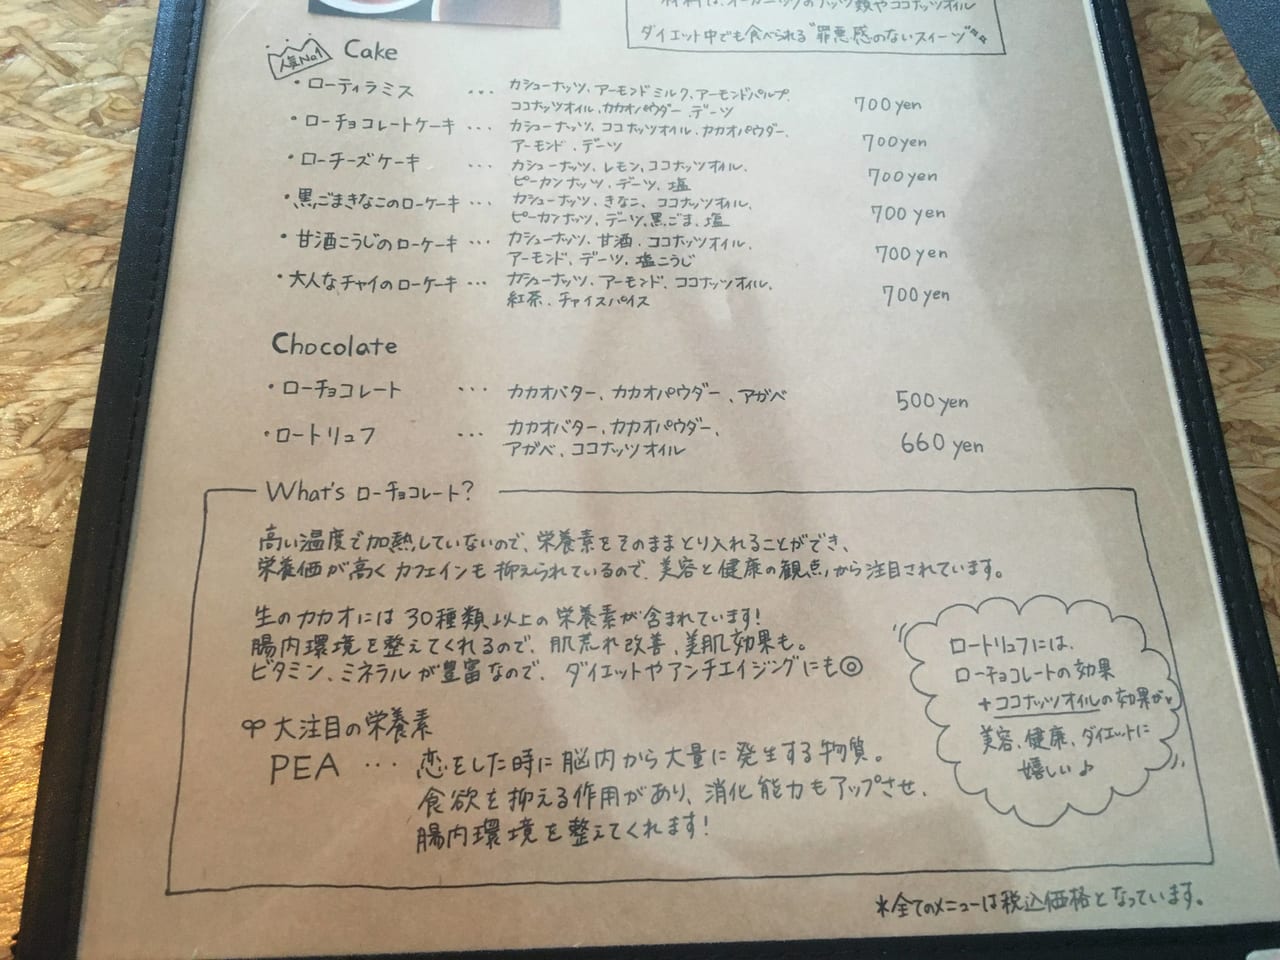 材料は、オーガニックのナッツ類やココナッツオイル
ダイエット中でも食べられる"罪悪感のないスイーツ"
人気No.1
Cake
・ローティラミス ... カシューナッツ、アーモンドミルク、アーモンドパルプ、 700yen
ココナッツオイル、カカオパウダー、デーツ
・ローチョコレートケーキ ... カシューナッツ、ココナッツオイル、カカオパウダー、 700yen
アーモンド、デーツ
・ローチーズケーキ ... カシューナッツ、レモン、ココナッツオイル、 700yen
ピーカンナッツ、デーツ、塩
・黒ごまきなこのローケーキ ... カシューナッツ、きなこ、ココナッツオイル、 700yen
ピーカンナッツ、デーツ、黒ごま、塩
・甘酒こうじのローケーキ ... カシューナッツ、甘酒、ココナッツオイル、 700yen
アーモンド、デーツ、塩こうじ
・大人なチャイのローケーキ ... カシューナッツ、アーモンド、ココナッツオイル、 700yen
紅茶、チャイスパイス
Chocolate
・ローチョコレート ... カカオバター、カカオパウダー、アガベ 500yen
・ロートリュフ ... カカオバター、カカオパウダー、 660yen
アガベ、ココナッツオイル
What's ローチョコレート?
高い温度で加熱していないので、栄養素をそのままとり入れることができ、
栄養価が高くカフェインも抑えられているので、美容と健康の観点から注目されています。
生のカカオには30種類以上の栄養素が含まれています!
腸内環境を整えてくれるので、肌荒れ改善、美肌効果も。
ビタミン、ミネラルが豊富なので、ダイエットやアンチエイジングにも◎
大注目の栄養素
PEA ... 恋をした時に脳内から大量に発生する物質。
食欲を抑える作用があり、消化能力もアップさせ、
腸内環境を整えてくれます!
ロートリュフには、
ローチョコレートの効果
+ココナッツオイルの効果が♥
美容、健康、ダイエットに
嬉しい♪
*全てのメニューは税込価格となっています。